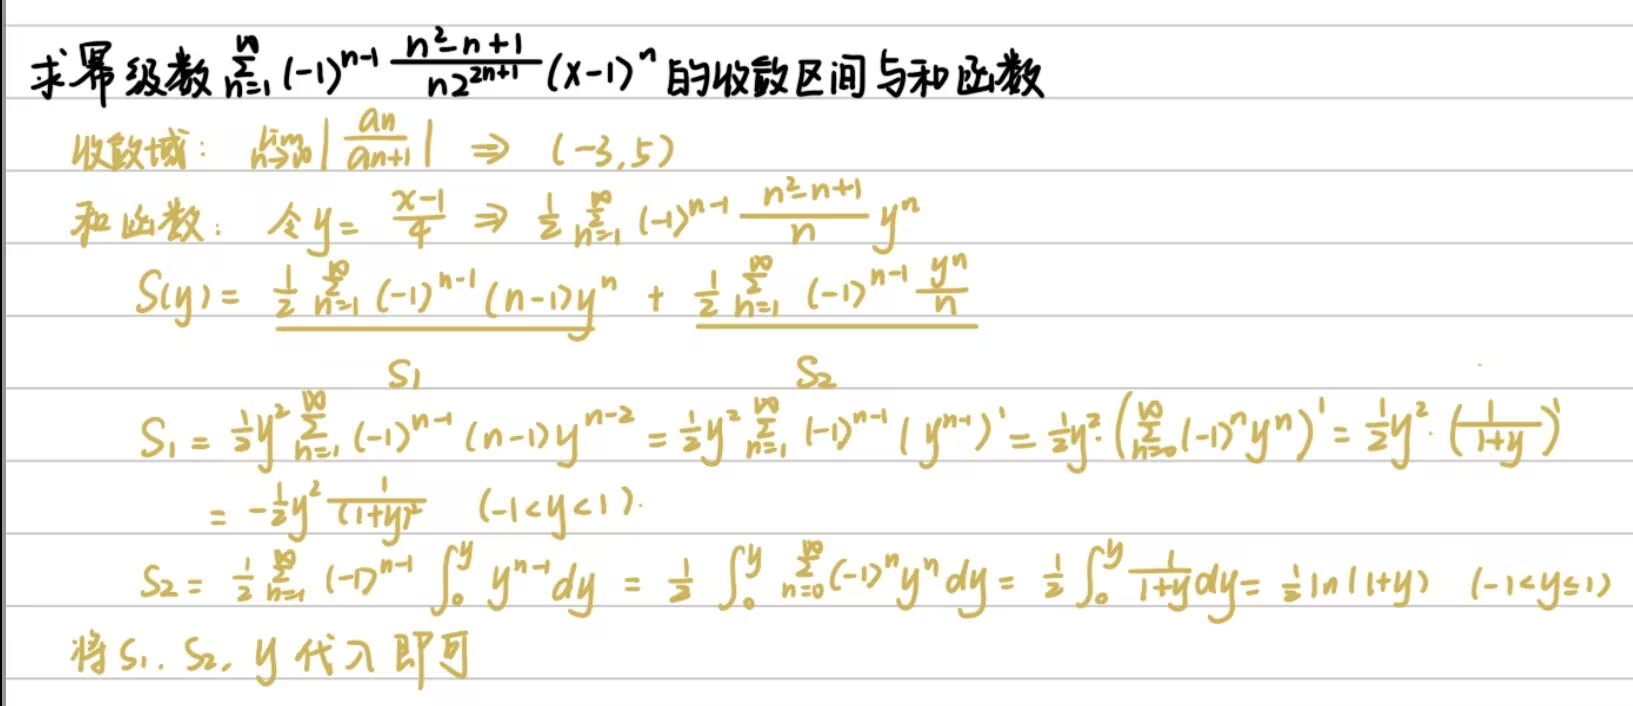 求幂级数 ∑_{n=1}^{∞} (-1)^{n-1} \frac{n²-n+1}{n2^{2n+1}} (x-1)^n 的收敛区间与和函数
收敛域: lim_{n→∞} |\frac{an}{an+1}| ⇒ (-3,5)
和函数: 令y= \frac{x-1}{4} ⇒ \frac{1}{2} ∑_{n=1}^{∞} (-1)^{n-1} \frac{n²-n+1}{n} y^n
S(y)= \frac{1}{2} ∑_{n=1}^{∞} (-1)^{n-1} (n-1)y^n + \frac{1}{2} ∑_{n=1}^{∞} (-1)^{n-1} \frac{y^n}{n}
S₁ S₂
S₁ = \frac{1}{2}y² ∑_{n=1}^{∞} (-1)^{n-1} (n-1)y^{n-2} = \frac{1}{2}y² ∑_{n=1}^{∞} (-1)^{n-1} (y^{n-1})' = \frac{1}{2}y²·(∑_{n=0}^{∞}(-1)^n y^n)' = \frac{1}{2}y²·(\frac{1}{1+y})'
= -\frac{1}{2}y² \frac{1}{(1+y)²} (-1<y<1).
S₂ = \frac{1}{2} ∑_{n=1}^{∞} (-1)^{n-1} ∫_0^y y^{n-1}dy = \frac{1}{2} ∫_0^y ∑_{n=0}^{∞}(-1)^n y^n dy = \frac{1}{2} ∫_0^y \frac{1}{1+y}dy = \frac{1}{2}ln(1+y) (-1<y≤1)
将S₁. S₂, y 代入即可